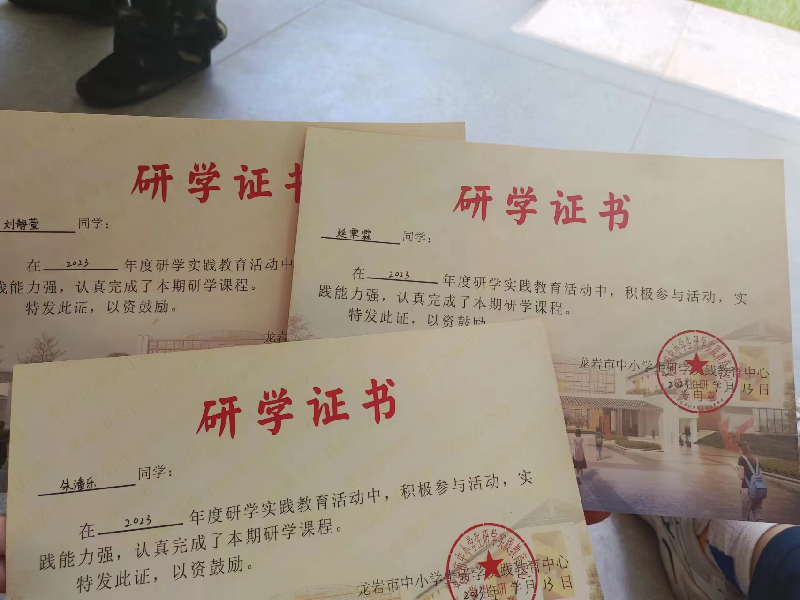 研学证书
刘静萱 同学：
在 2023 年度研学实践教育活动中
践能力强，认真完成了本期研学课程。
特发此证，以资鼓励。
龙岩
研学证书
同学：
在 2023 年度研学实践教育活动中，积极参与活动，实
践能力强，认真完成了本期研学课程。
特发此证，以资鼓励
龙岩市中小学生研学实践教育中心
13日
研学证书
朱潘乐 同学：
在 2023 年度研学实践教育活动中，积极参与活动，实
践能力强，认真完成了本期研学课程。
特发此证，以资鼓励。
龙岩市中小学生研学实践教育中心
13日